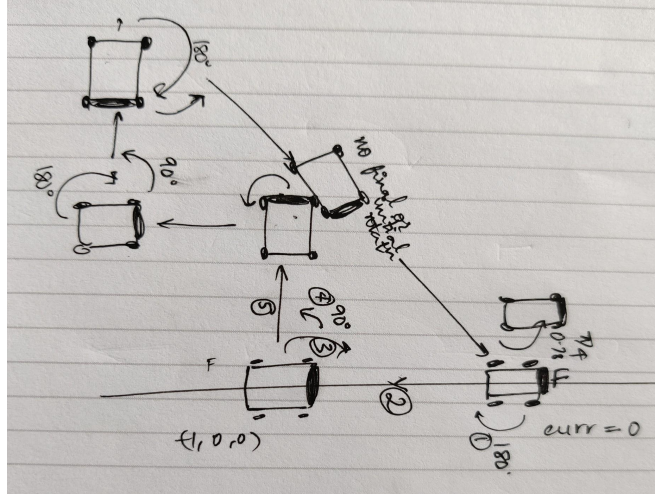 180°
180°
90°
no final or
initial
rotatn
⑤
④ 90°
③
F
②
(1, 0, 0)
π/4
0.78
F
① 180°
curr = 0